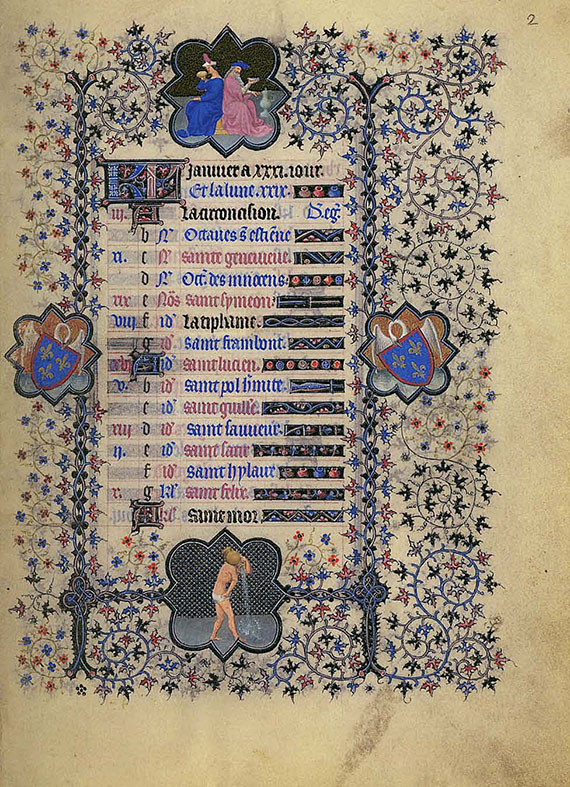 2
KL Januier a xxxi. iour.
Et la lune. xxix.
iii A La circoncision. D. eg.
b N Octaues s. estiēne
xi. c N sainte geneuieue.
d N Oct. des innocens.
xix e Nōs saint symeon.
viii f id La tiphaine.
g id saint frambout.
xvi A id saint lucien.
v. b id saint pol hmite.
c id saint guille.
xiii d id saint sauueur.
ii. e id saint satir
f id saint hylaire
x. g kl. saint felix.
A kl saint mor